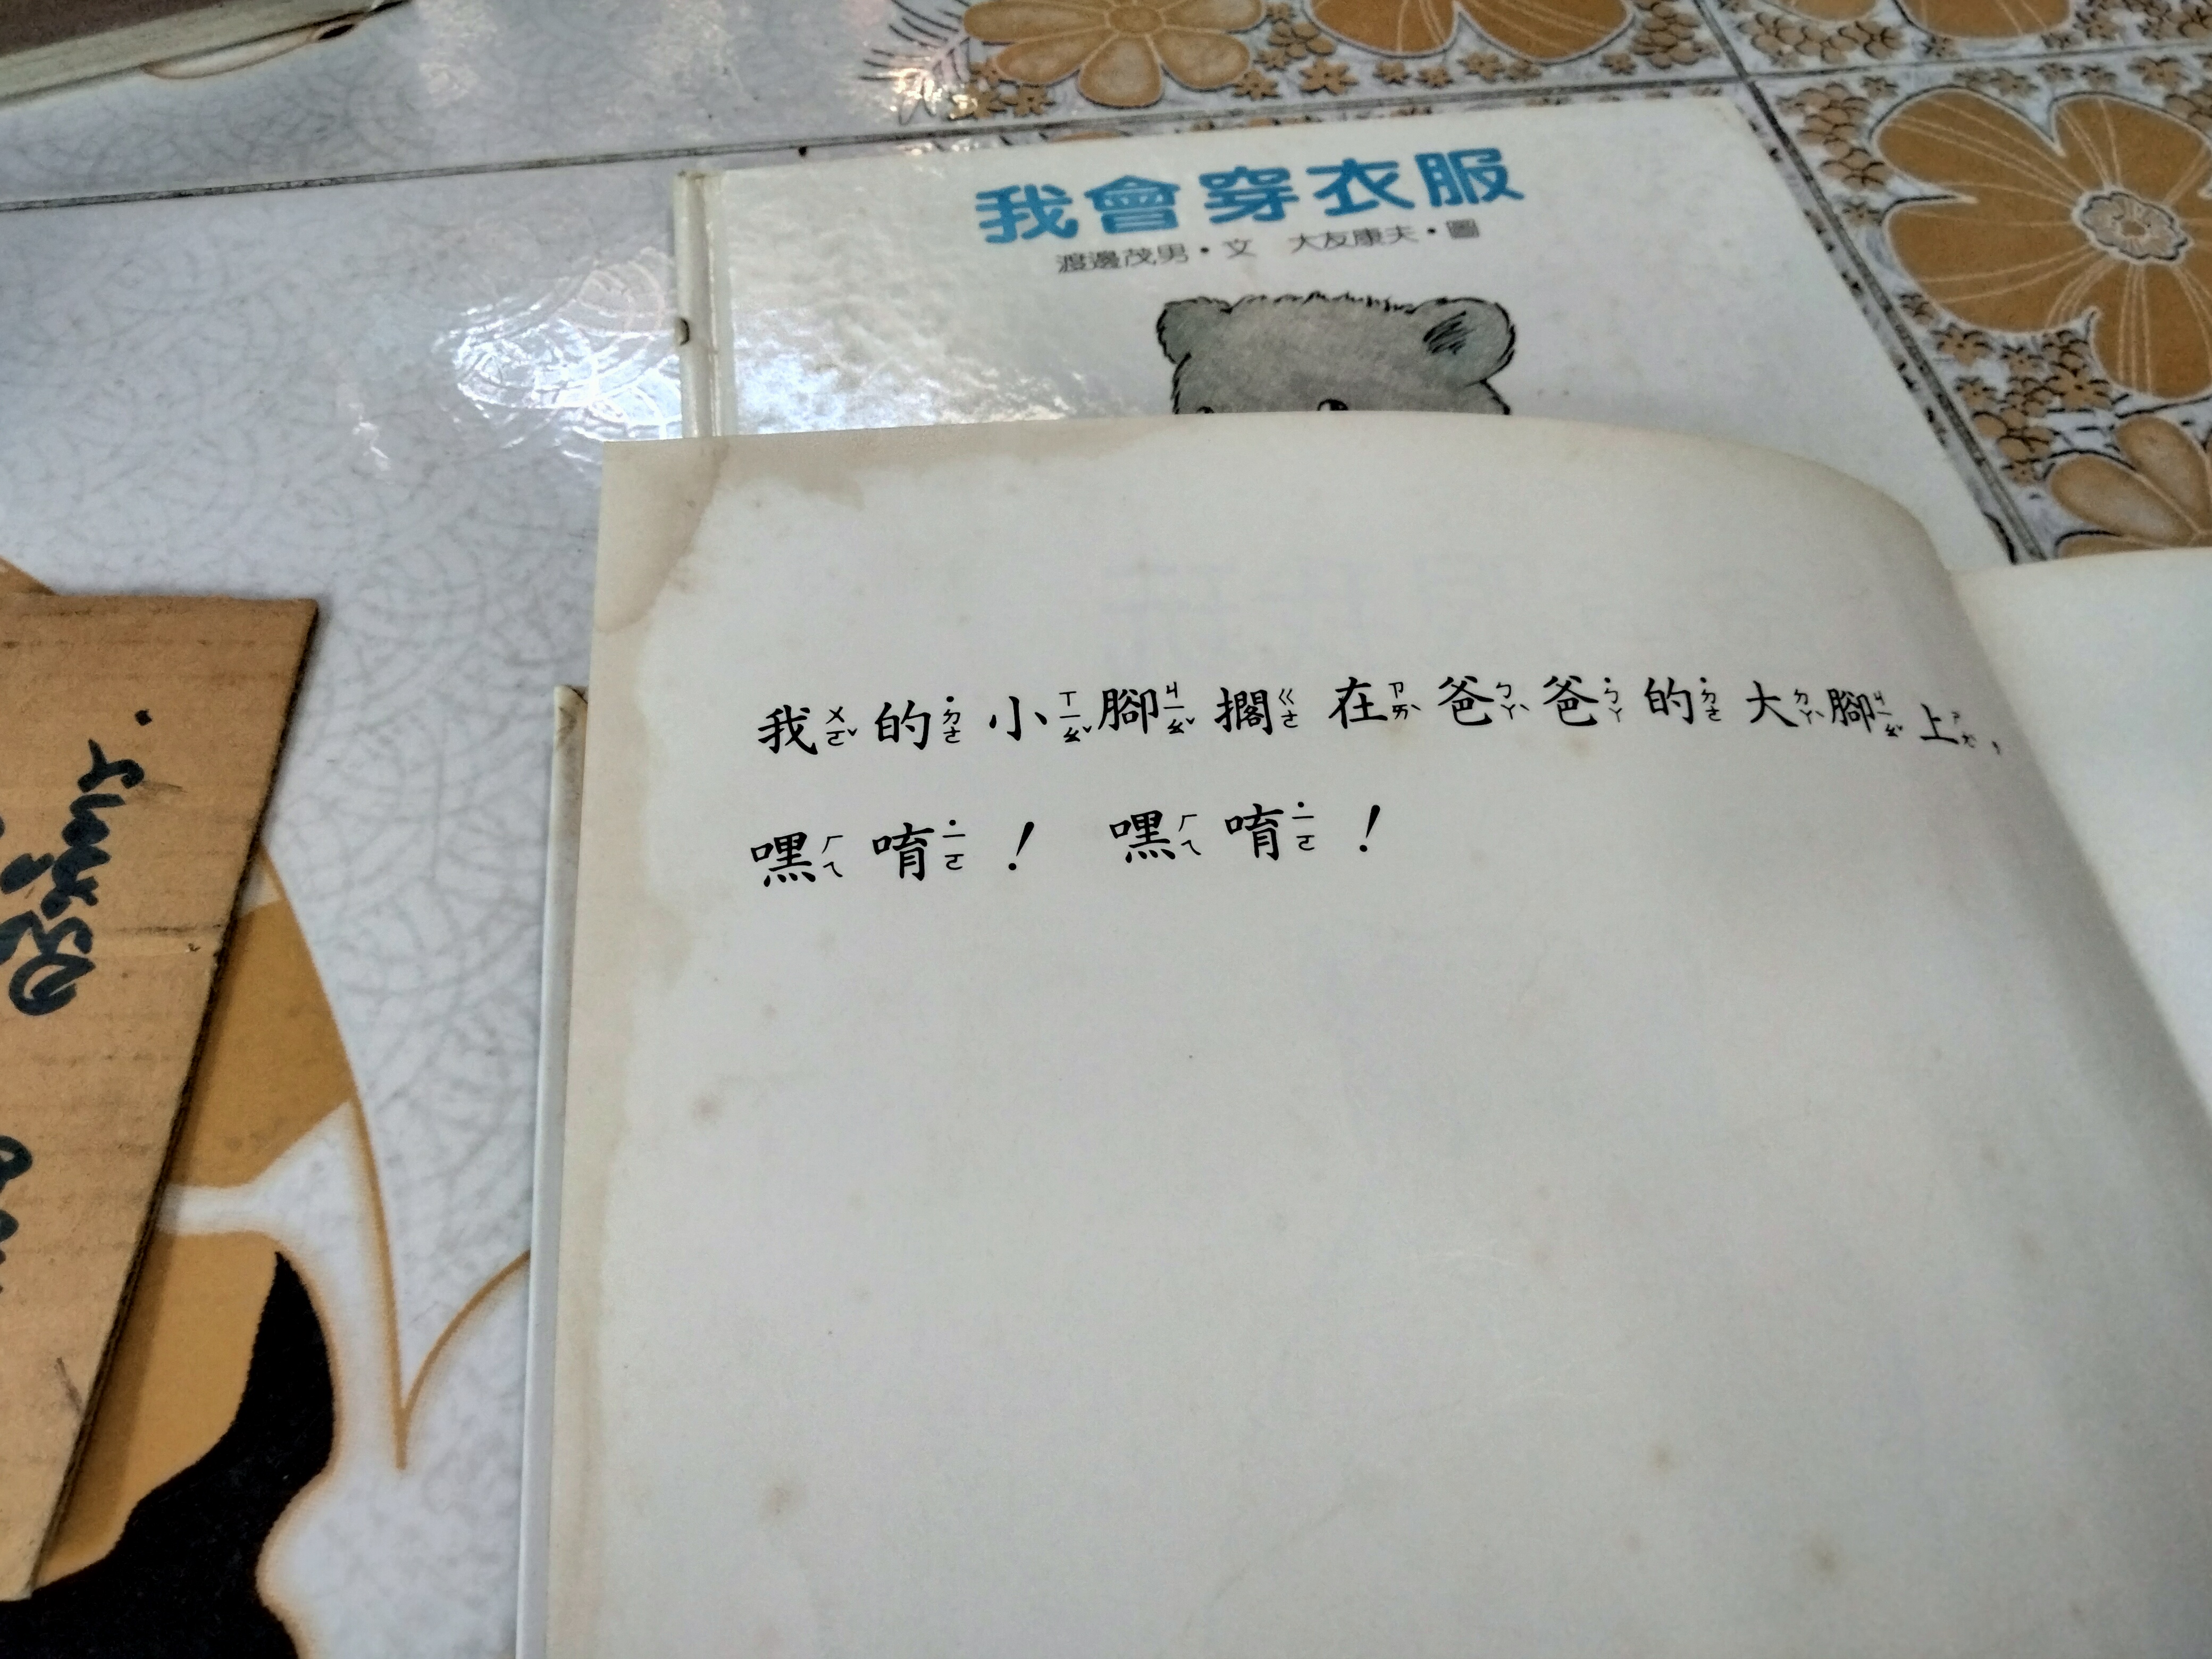 我會穿衣服
渡邊茂男・文　大友康夫・圖
我ㄨㄛˇ的˙ㄉㄜ小ㄒㄧㄠˇ腳ㄐㄧㄠˇ擱ㄍㄜ在ㄗㄞˋ爸ㄅㄚˋ爸˙ㄅㄚ的˙ㄉㄜ大ㄉㄚˋ腳ㄐㄧㄠˇ上ㄕㄤˋ，
嘿ㄏㄟ唷˙ㄧㄛ！　嘿ㄏㄟ唷˙ㄧㄛ！